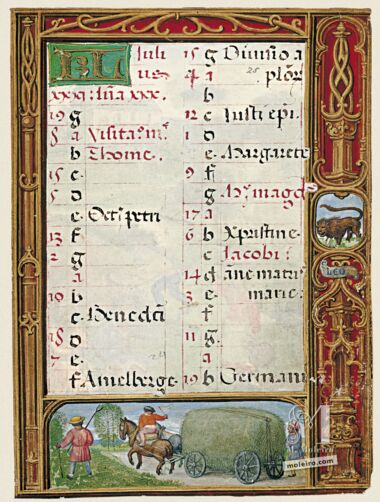 KL Juli
us
xxxi: lũa xxx.
19 g
8 a Visita᷒ m᷒.
b Thome.
c
5 d
e Oct᷒ petri
13 f
2 g
a
10 b
c Benedcti
18 d
7 e
f Amelberge
15 g Diuisio a
4 a plor᷒
b
12 c Iusti epi.
1 d
e Margarete
9 f
g M᷒ magd᷒
17 a
6 b Xpistine
c Iacobi:
14 d anne matris
3 e marie:
f
11 g
a
19 b Germani
LEO
moleiro.com